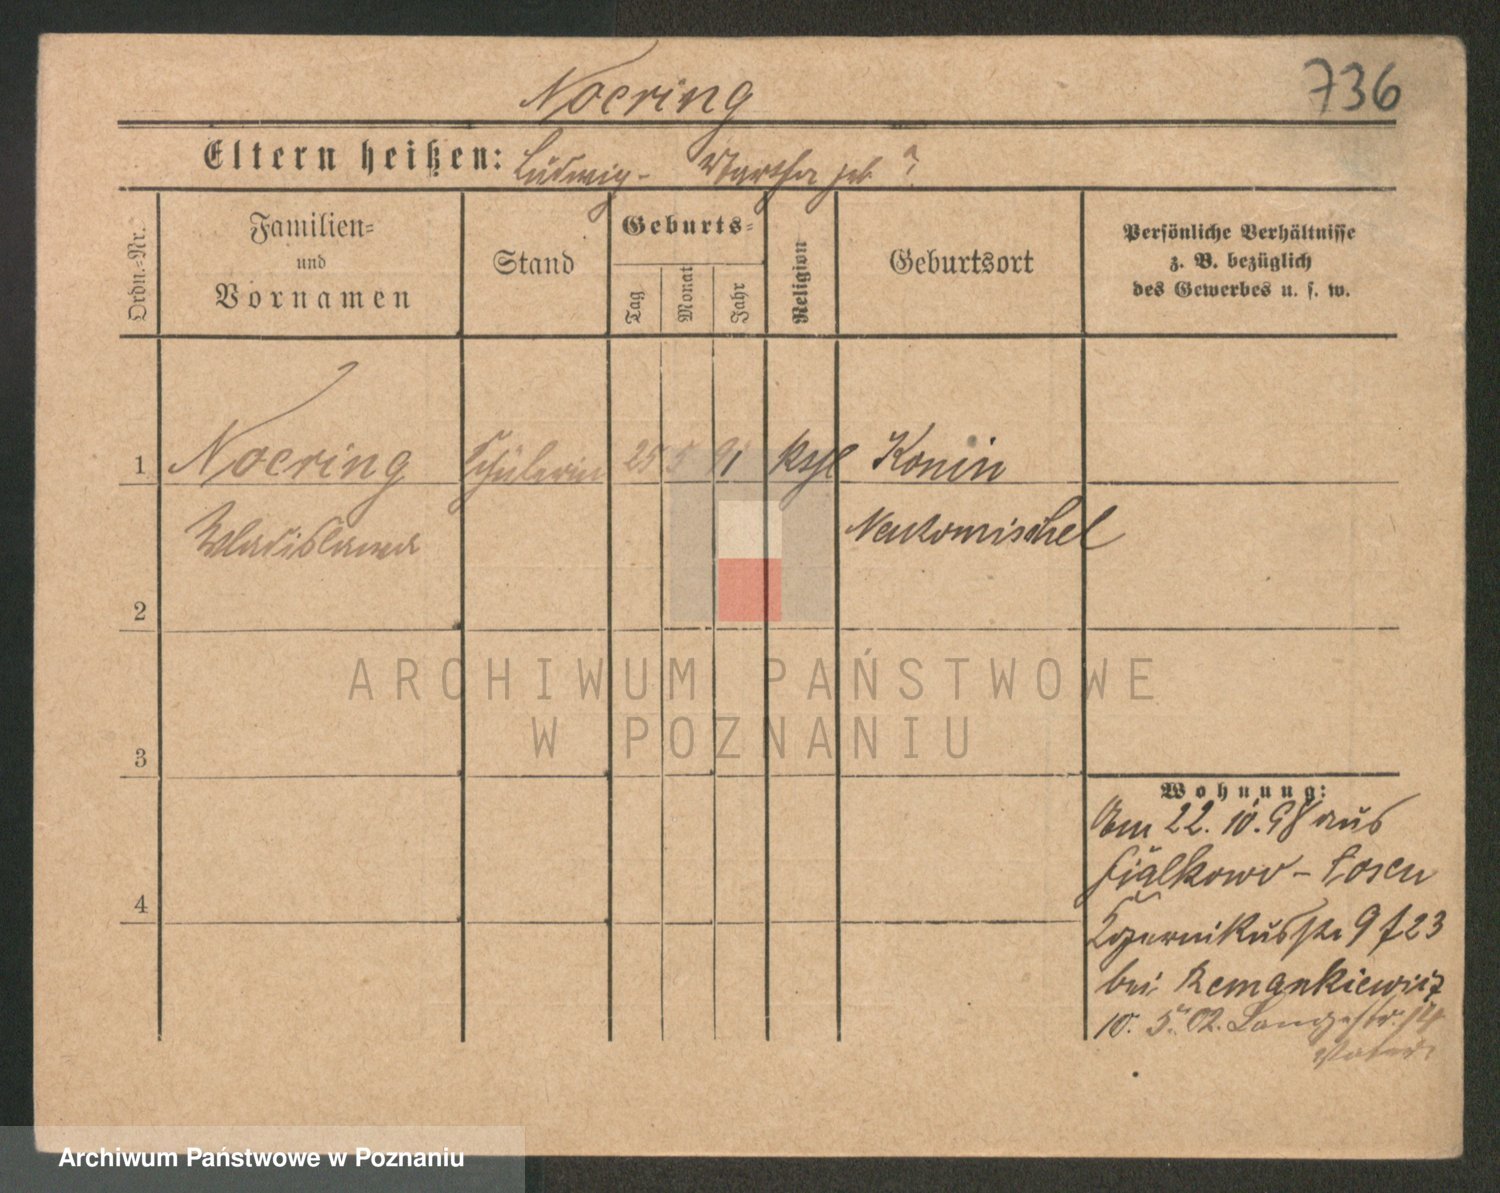 Noering
736
Eltern heißen: Ludwig - Martha geb ?
Ordn.=Nr.
Familien=
und
Vornamen
Stand
Geburts=
Tag
Monat
Jahr
Religion
Geburtsort
Persönliche Verhältnisse
z. B. bezüglich
des Gewerbes u. s. w.
1 Noering Schülerin 25 5 91 kath Konin
Wladislawa Neutomischel
2
ARCHIWUM PAŃSTWOWE
W POZNANIU
3
Wohnung:
Am 22. 10. 98 aus
Fialkowo - Posen
9 f 23
bei
10. 5. 02. Langestr. 14
4
Archiwum Państwowe w Poznaniu